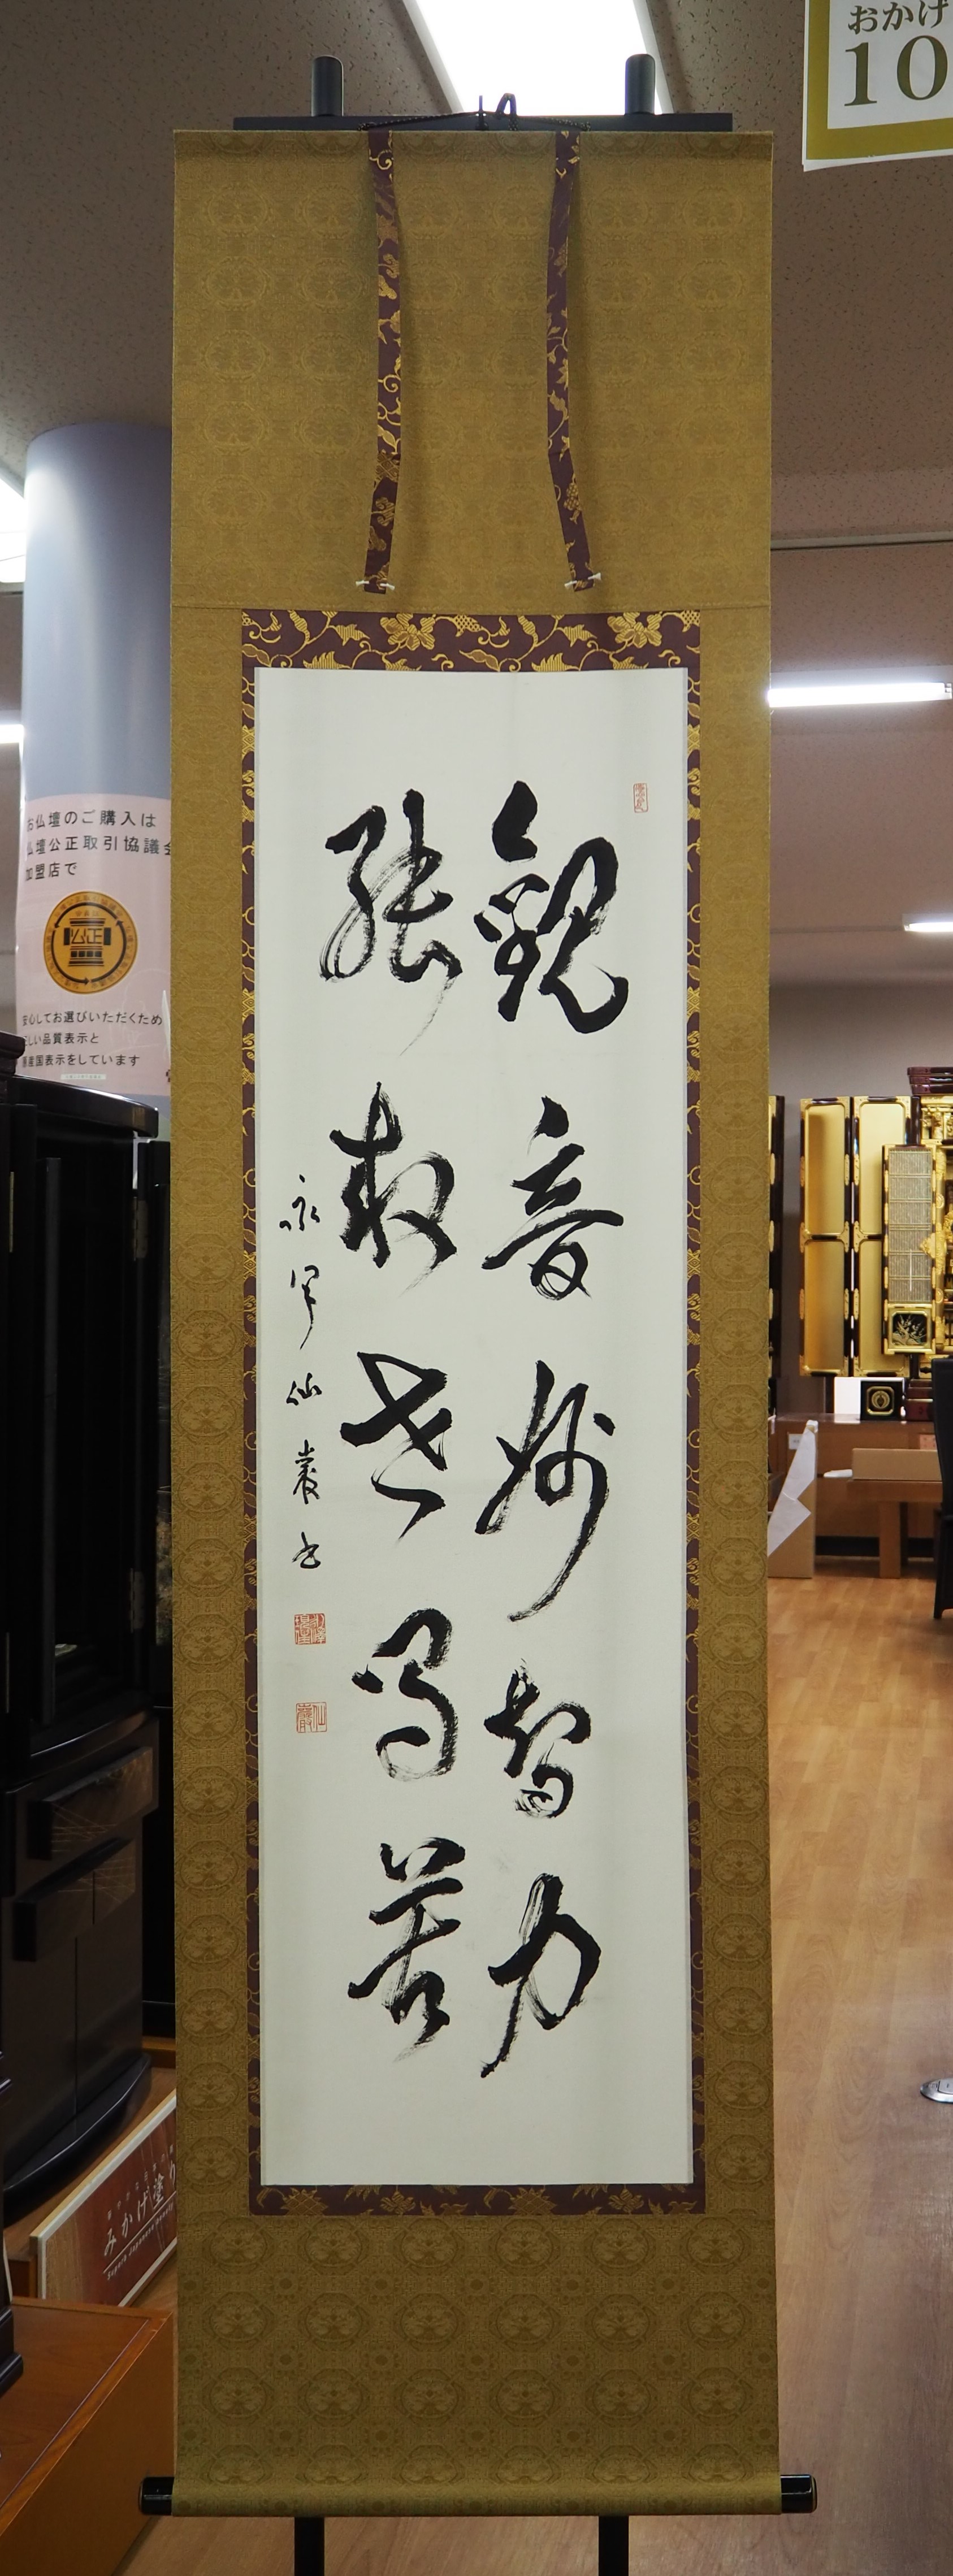 觀音妙智力
能救世間苦
永平仙巖書
おかげ
10
お仏壇のご購入は
仏壇公正取引協議会
加盟店で
公正
安心してお選びいただくため
正しい品質表示と
原産国表示をしています
みかげ塗り